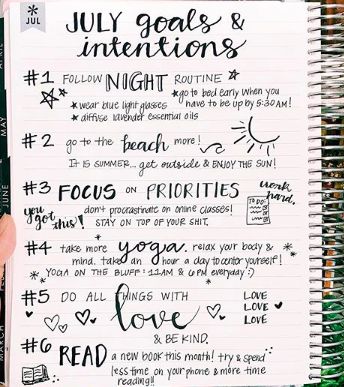 JUL
JULY goals &
intentions
#1 FOLLOW NIGHT ROUTINE
* wear blue light glasses
* diffuse lavender essential oils
* go to bed early when you
have to be up by 5:30AM!
#2 go to the beach more!
IT IS SUMMER... get outside & ENJOY THE SUN!
#3 FOCUS ON PRIORITIES
work hard.
you got this!
don't procrastinate on online classes!
STAY ON TOP OF YOUR SHIT.
TO DO:
#4 take more yoga. relax your body &
mind. take an hour a day to center yourself!
* YOGA ON THE BLUFF: 11AM & 6PM everyday :)
#5 DO ALL THINGS WITH
love
& BE KIND.
LOVE
LOVE
LOVE
#6 READ a new book this month! try & spend
less time on your phone & more time
reading!!
APRIL
MAY
JUNE
MARCH